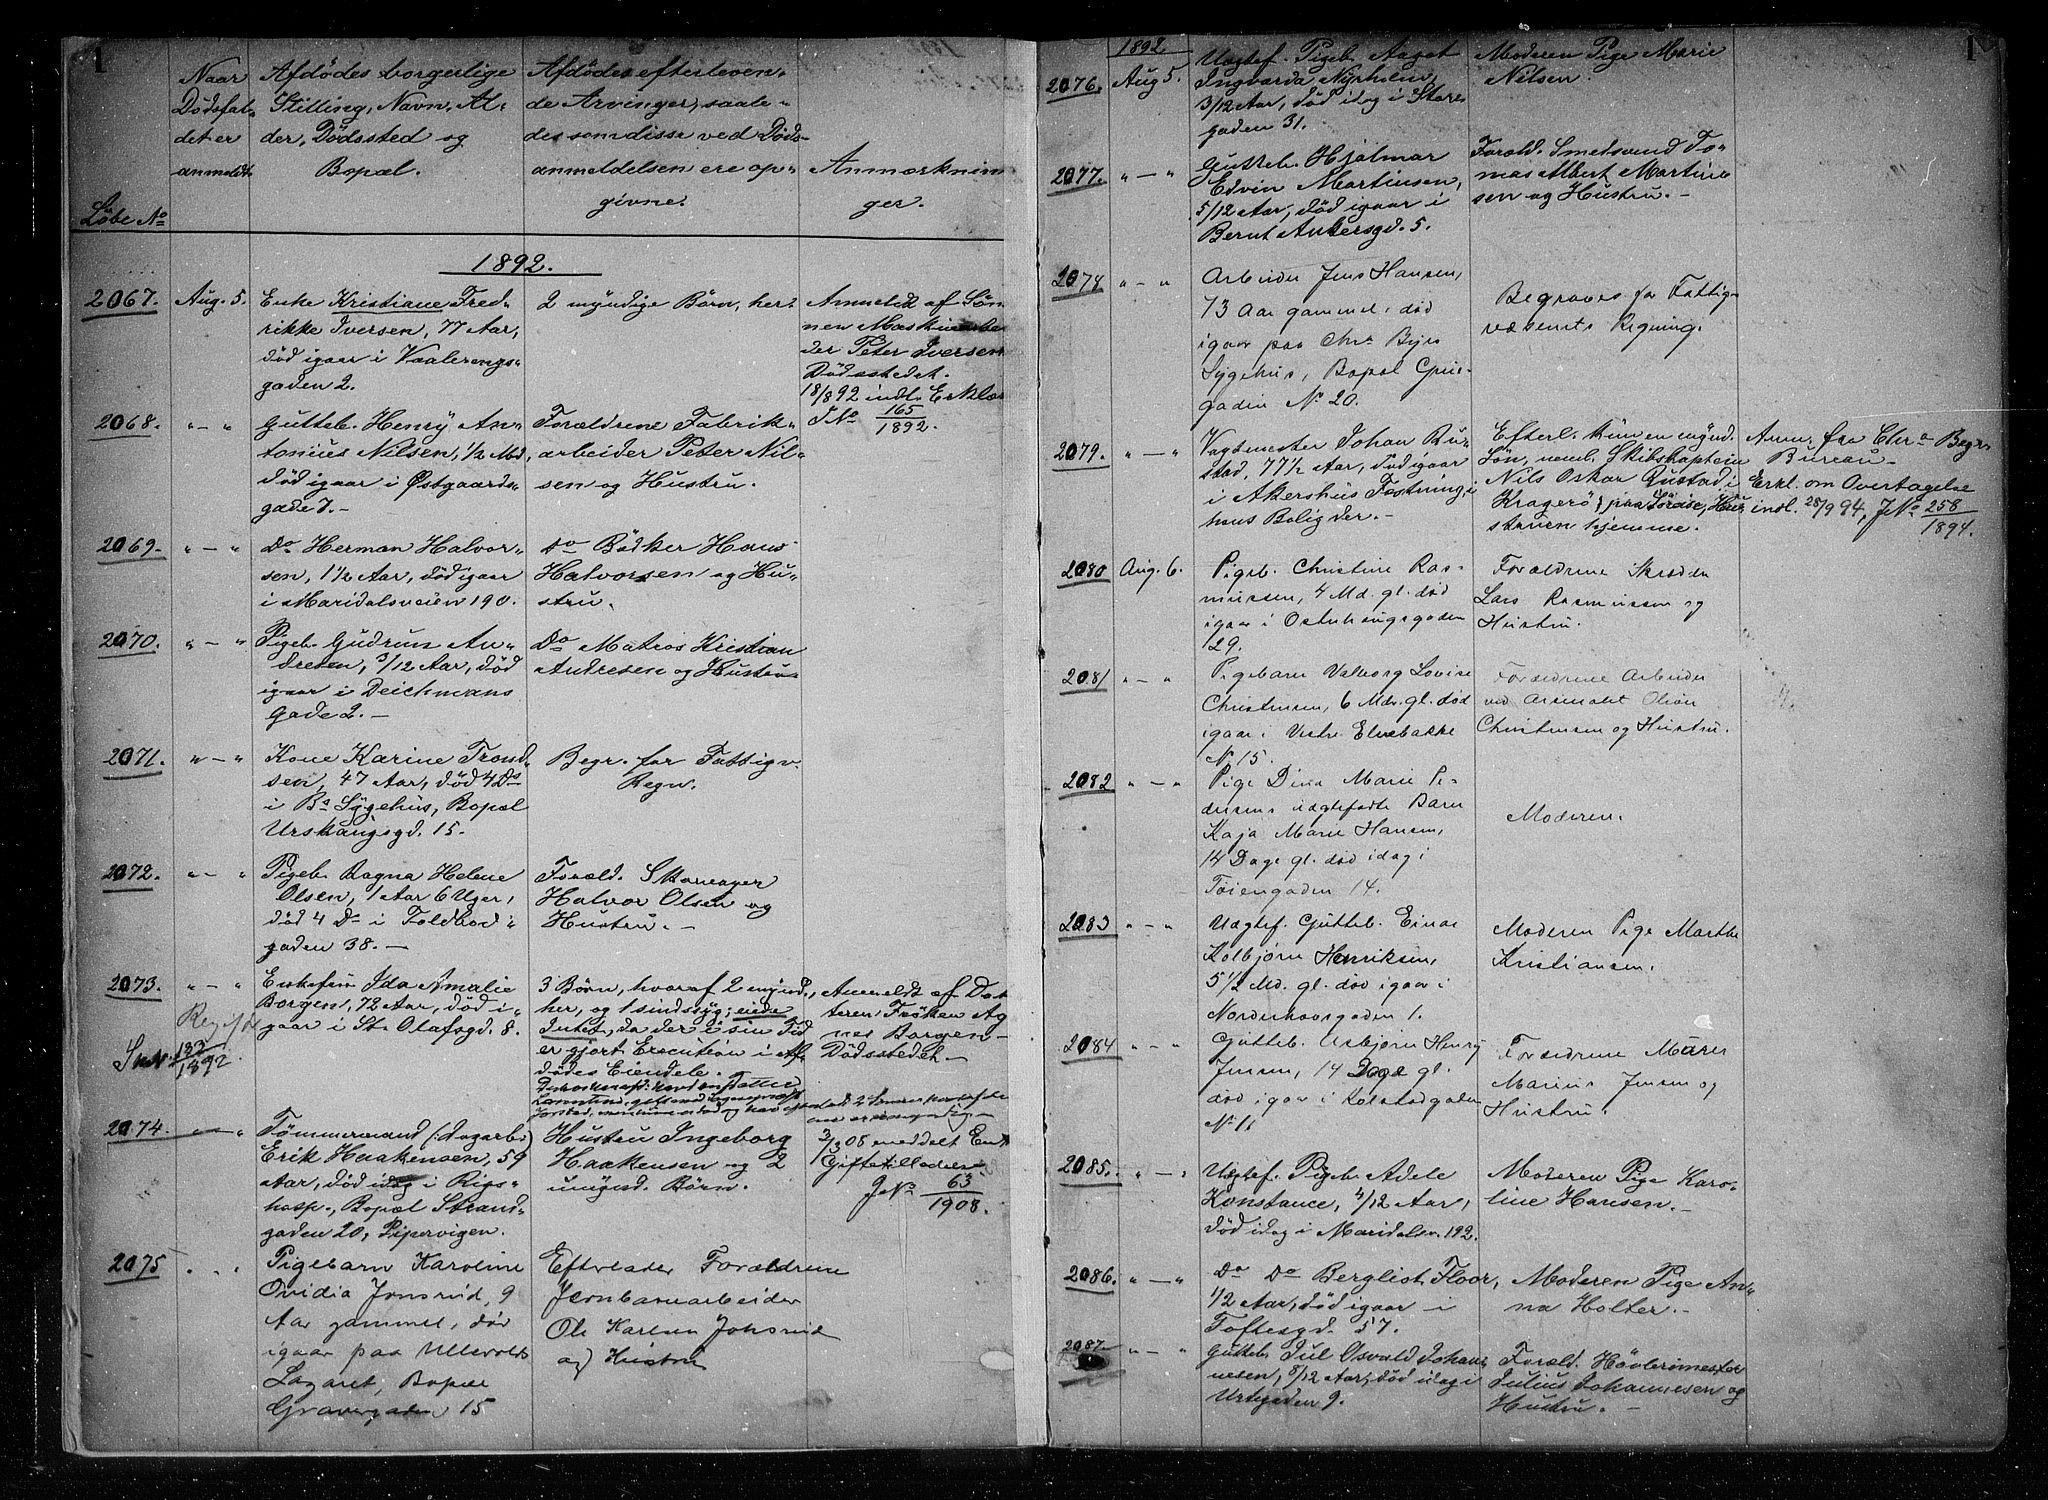 1
Naar
Dødsfal-
det er
anmeldt.
Afdødes borgerlige
Stilling, Navn, Al-
der, Dødssted og
Bopæl.
Afdødes efterleven-
de Arvinger, saale-
des som disse ved Døds-
anmeldelsen ere op-
givne.
Anmærknin-
ger.
Løbe No
1892.
2067. Aug. 5. Enke Kristiane Fred-
rikke Iversen, 77 Aar,
død igaar i Vaalerengs-
gaden 2.
2 myndige Børn, her.
Anmeldt af Søn-
nen Maskinarbei-
der Peter Iversen
Dødsstedet.
18/8 92 indl. Erklær.
J No 165/1892.
2068. " — " Gutteb. Henry An-
tonius Nilsen, 1/2 Md,
død igaar i Østgaards-
gade 7. —
Forældrene Fabrik-
arbeider Peter Nil-
sen og Hustru.
2069. " — " Do Herman Halvor-
sen, 1 1/2 Aar, død igaar
i Maridalsveien 190.
Do Bødker Hans
Halvorsen og Hu-
stru.
2070. " — " Pigeb. Gudrun An-
dresen, 3/12 Aar, død
igaar i Deichmans
gade 2. —
Do Matros Kristian
Andresen og Hustru
2071. " — " Kone Karine Trond-
sen, 47 Aar, død 4 Ds
i Bs Sygehus, Bopæl
Urskaugsgd. 15.
Begr. for Fattigv.
Regn.
2072. " — " Pigeb. Ragna Helene
Olsen, 1 Aar 6 Uger,
død 4 Ds i Toldbod-
gaden 38. —
Foræld. Skomager
Halvor Olsen og
Hustru. —
2073. " — " Enkefru Ida Amalie
Borgen, 72 Aar, død i-
gaar i St. Olafsgd. 8.
3 Børn, hvoraf 2 mynd.,
her, og 1 sindssyg; eiede
Intet, da der i sin Tid
er gjort Execution i Af-
dødes Eiendele.
Anmeldt af Dat-
teren, Frøken Ag-
nes Borgen
Dødsstedet. —
133/1892.
2074. " — " Tømmermand (Dagarb.)
Erik Haakensen, 59
Aar, død idag i Rigs-
hosp., Bopæl Strand-
gaden 20, Pipervigen.
Hustru Ingeborg
Haakensen og 2
umynd. Børn.
meddelt En-
Giftetilladelse
J No 63/1908.
2075 " . " Pigebarn Karoline
Ovidia Jonsrud, 9
Aar gammel, død
igaar paa Ullevolds
Lazaret, Bopæl
Gravergaden 15
Efterlader Forældrene
Jernbanearbeider
Ole Karlsen Johnsrud
og Hustru
1
1892
2076. Aug 5. Uægtef. Pigeb. Aagot
Ingvarda Nyholm,
3/12 Aar, død idag i Stor-
gaden 31.
Moderen Pige Marie
Nilsen.
2077. " — " Gutteb. Hjalmar
Edvin Martinsen,
5/12 Aar, død igaar i
Bernt Ankersgd. 5.
Foræld. Smedsvend To-
mas Albert Martin-
sen og Hustru. —
2078 " — " Arbeider Jens Hansen,
73 Aar gammel, død
igaar paa Chra Byes
Sygehus, Bopæl
gaden No 20.
Begraves for Fattig-
væsenets Regning.
2079. " — " Vagtmester Johan Ru-
stad, 77 1/2 Aar, død igaar
i Akershus Fæstning i
hans Bolig der. —
Efterl. kun en mynd.
Søn, neml. Skibskaptein
Nils Oskar Rustad i
Kragerø, paa Søreise, Hu-
struen hjemme.
Anm. fra Chra Begr.
Bureau —
Erkl. om Overtagelse
indl. 28/9 94, J No 258/1894.
2080 Aug. 6. Pigeb. Christine Ras-
mussen, 4 Md. gl. død
igaar i
29.
Forældrene Skrædder
Lars Rasmussen og
Hustru.
2081 " — " Pigebarn Valborg Lovise
Christensen, 6 Mdr. gl. død
igaar i Vestre Elvebakke
No 15.
Forældrene Arbeider
ved Arsenalet
Christensen og Hustru.
2082 " — " Pige Dina Marie Pe-
dersens uægtefødte Barn
Kaja Marie Hansen,
14 Dage gl. død idag i
Tøiengaden 14.
Moderen.
2083 " — " Uægtef. Gutteb. Einar
Kolbjørn Henriksen,
5 1/2 Md. gl. død igaar i
Norderhovsgaden 1.
Moderen Pige Marthe
Kristiansen.
2084 " — " Gutteb. Asbjørn Henry
Jensen, 14 Dage gl.
død igaar i Kolstadgaden
No 11
Forældrene Murer
Marius Jensen og
Hustru.
2085. " — " Uægtef. Pigeb. Adele
Konstance, 4/12 Aar,
død idag i Maridalsv. 192.
Moderen Pige Karo-
line Hansen. —
2086. " — " Do Do Berglioth Floor,
1/2 Aar, død igaar i
Toftesgd. 57.
Moderen Pige An-
na Holter. —
2087. " — " Gutteb. Jul Osvald Johan-
nesen, 8/12 Aar, død idag i
Urtegaden 9.
Foræld. Høvlerimester
Julius Johannesen og
Hustru. —